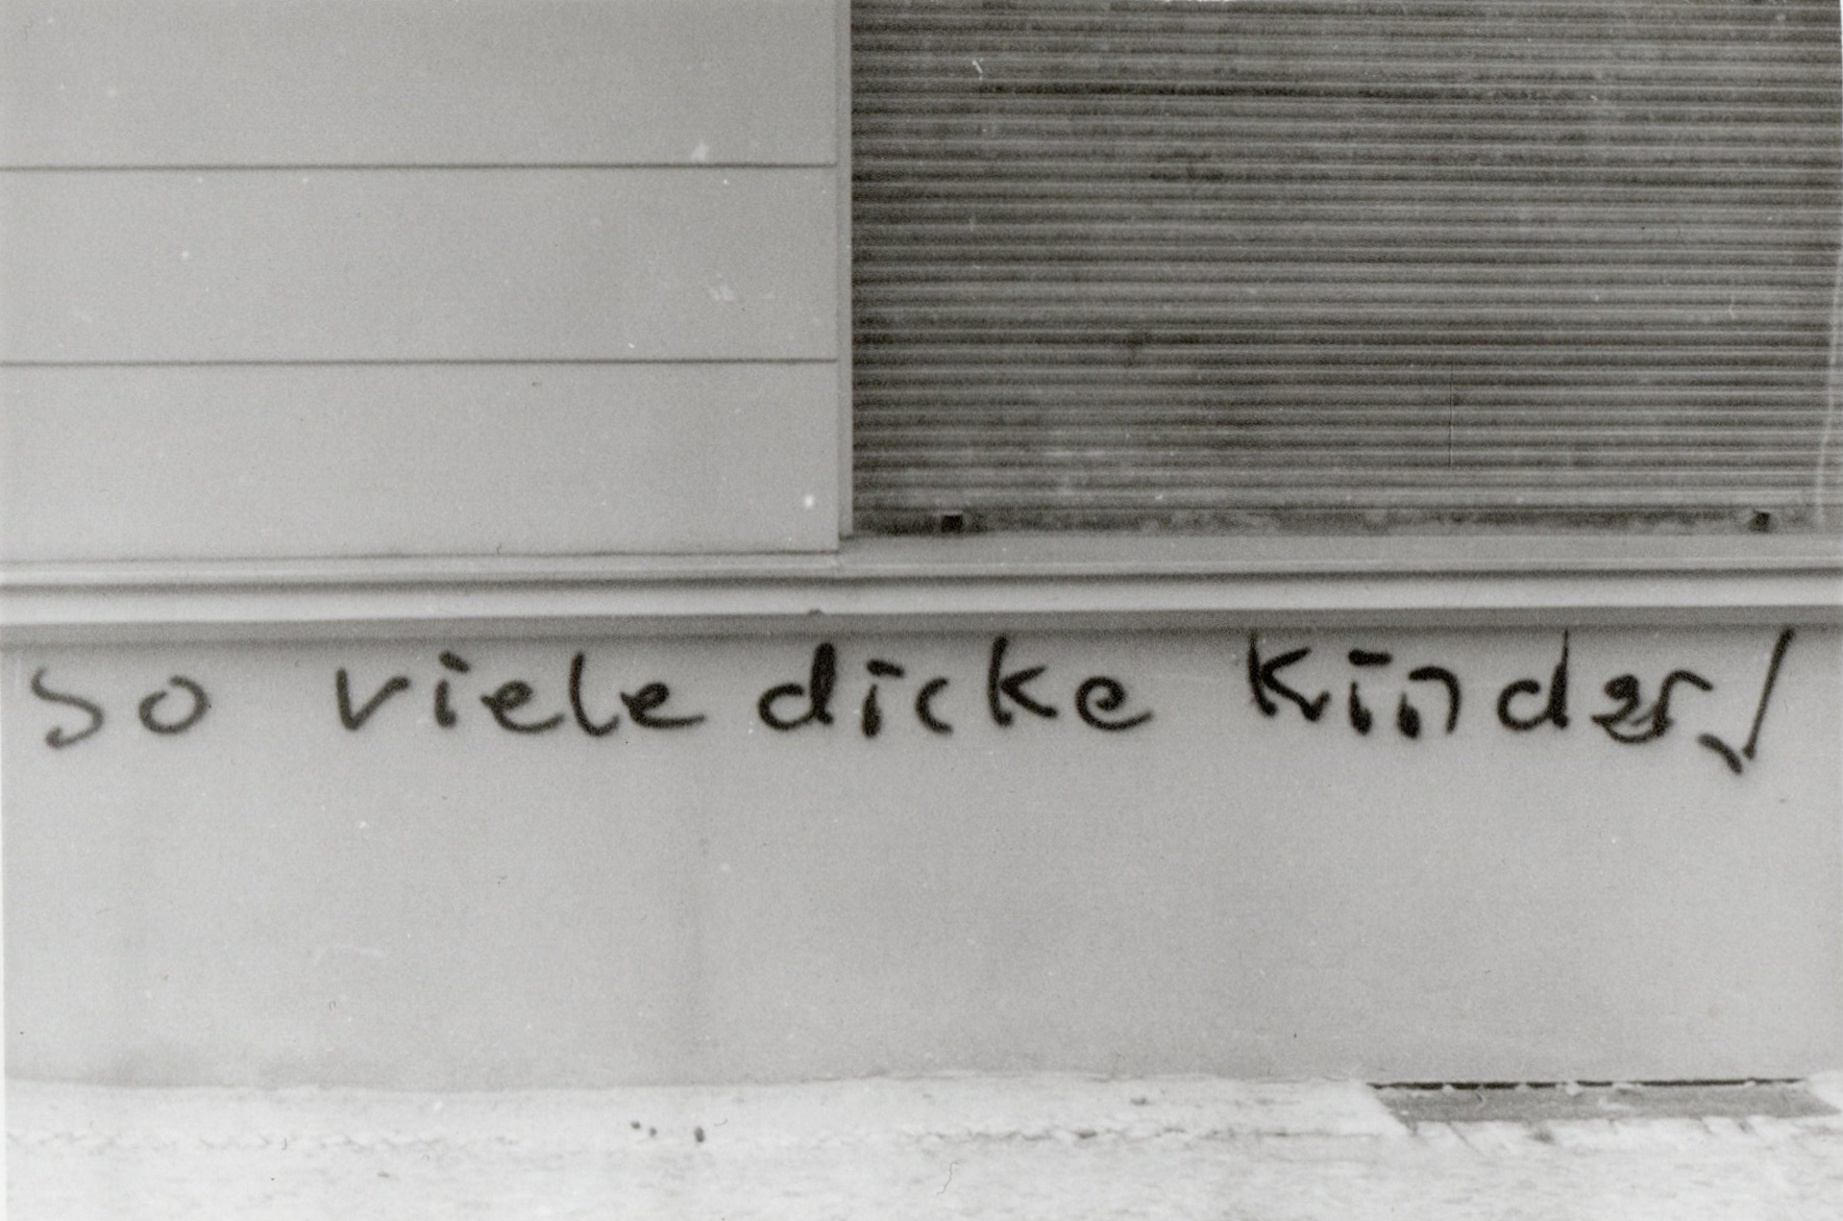 so viele dicke Kinder!